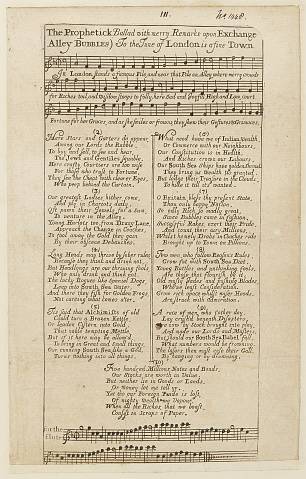 III.
No 1648.
The Prophetick Ballad with merry Remarks upon Exchange
Alley BUBBLES) To the Tune of London is a fine Town
IN London stands a famous Pile, and near that Pile an Alley where merry crowds
for Riches toil, and Wisdom stoops to folly, here Sad and Joyful High and Low court
Fortune for her Graces, and as she smiles or frowns they shew their Gestures & Grimaces.
(2)
Here Stars and Garters do appear
Among our Lords the Rabble,
To buy and sell, to see and hear,
The Jews and Gentiles squable.
Here crafty Courtiers are too wise
For those who trust to Fortune,
They see the Cheat with clearer Eyes,
Who peep behind the Curtain.
(3)
Our greatest Ladies hither come,
And ply in Chariots daily,
Oft pawn their Jewels for a Sum,
To venture in the Alley.
Young Harlots too from Drury Lane,
Approach the Change in Coaches,
To fool away the Gold they gain
By their obscene Debauches.
(4)
Long Heads may thrive by sober rules
Because they think and drink not,
But Headlongs are our thriving fools
Who only drink and think not.
The lucky Rogues like Spaniel Dogs
Leap into South Sea Water,
And there they fish for Golden Frogs
Not caring what comes a'ter.
(5)
'Tis said that Alchimists of old
Could turn a Brazen Kettle,
Or leaden Cistern into Gold
That noble tempting Mettle.
But if it here may be allow'd,
To bring in Great and Small things,
Our cunning South Sea like a God,
Turns nothing into all things.
(6)
What need have we of Indian Wealth
Or Commerce with our Neighbours,
Our Constitution is in Health,
And Riches crown our Labours.
Our South Sea Ships have golden shrouds
They bring us Wealth 'tis granted,
But lodge their Treasure in the Clouds,
To hide it till its wanted.
(7)
O Britain bless thy present State,
Thou only happy Nation,
So oddly Rich, so madly Great,
Since Bubbles came in fashion,
Successful Rakes exert their Pride,
And count their airy Millions,
Whilst homely Drabs in Coaches ride
Brought up to Town on Pillions.
(8)
Few men who follow Reason's Rules
Grow fat with South Sea Diet,
Young Rattles and unthinking fools,
Are those that flourish by it
Old musty Jades and pushing Blades
Who've least Consideration,
Grow rich apace whilst wiser Heads,
Are struck with Admiration.
(9)
A race of men, who t'other day
Lay crush'd beneath Disasters,
Are now by Stock brought into play,
And made our Lords and Masters.
But should our South Sea Babel fall,
What numbers would be frowning,
The losers then must ease their Gall,
By hanging or by drowning.
(10)
Five hundred Millions Notes and Bonds,
Our Stocks are worth in Value,
But neither lie in Goods or Lands,
Or Money let me tell ye.
Yet tho our Foreign Trade is lost,
Of mighty Wealth we Vapour,
When all the Riches that we boast,
Consist in Scraps of Paper.
For the
Flute